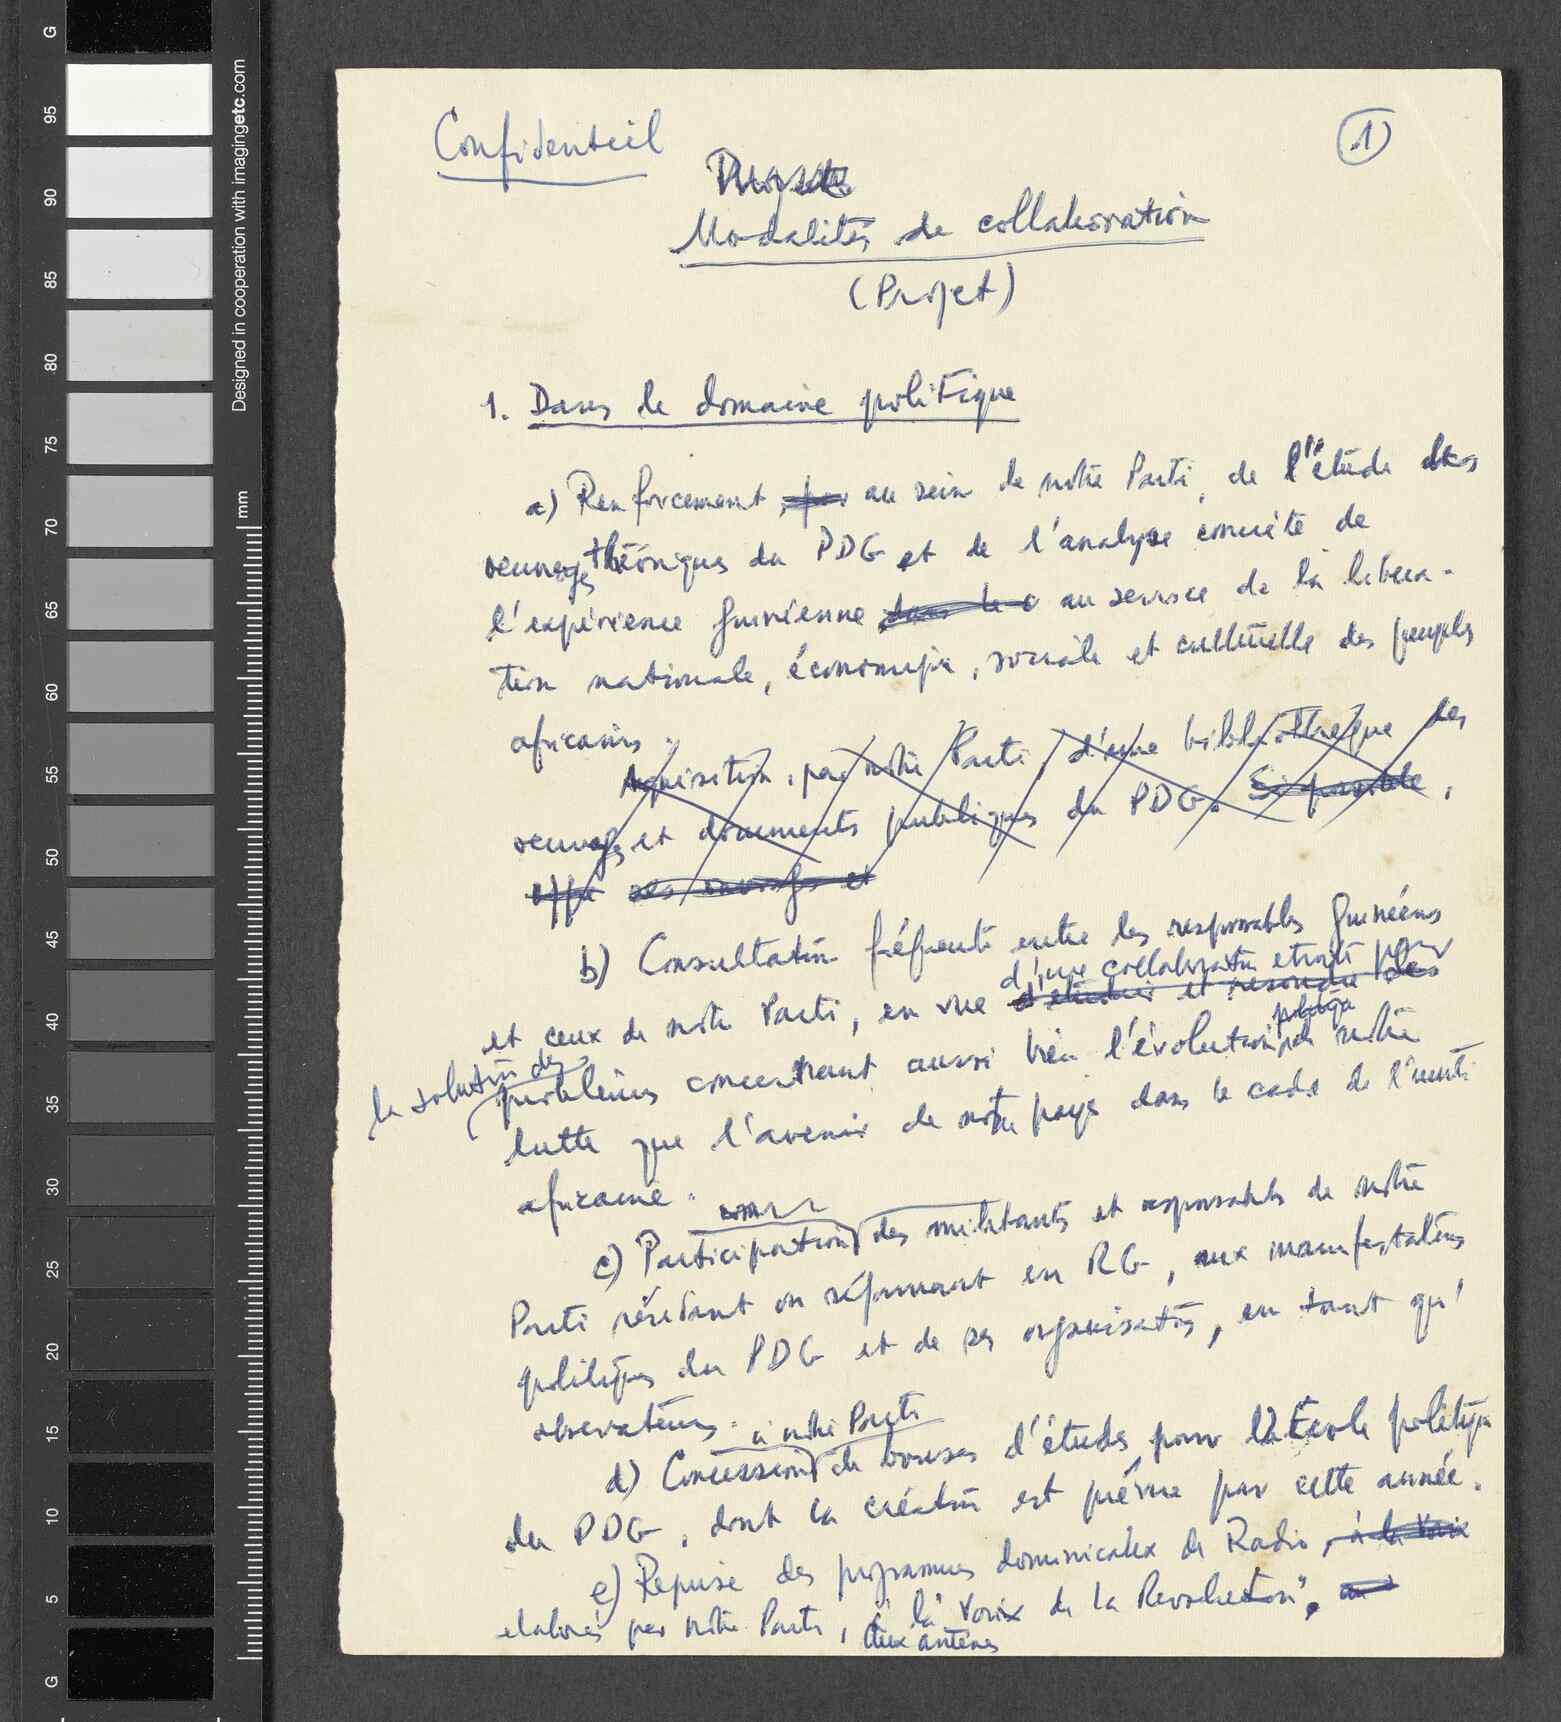 Confidentiel
1
Projet
Modalités de collaboration
(Projet)
1. Dans le domaine politique
a) Renforcement, par au sein de notre Parti, de l'étude des
oeuvres théoriques du PDG et de l'analyse concrète de
l'expérience guinéenne dans le c au service de la libéra-
tion nationale, économique, sociale et culturelle des peuples
africains.
Aquisition, par notre Parti, d'une bibliothèque des
oeuvres et documents publiques du PDG. Si possible,
des ouvrages et
b) Consultation fréquente entre les responsables guinéens
d'une collaboration etroite pour
et ceux de notre Parti, en vue d'étudier et resoudre des
politique
la solution des problèmes concernant aussi bien l'évolution de notre
lutte que l'avenir de notre pays dans le cadre de l'unité
africaine.
c) Participation des militants et responsables de notre
Parti résidant ou séjournant en RG, aux manifestations
politiques du PDG et de ses organisations, en tant qu'
observateurs.
à notre Parti
d) Concession de bourses d'études pour l'École politique
du PDG, dont la création est prévue pour cette année.
e) Reprise des programmes dominicales de Radio, à la Voix
elaborés par notre Parti, à la "Voix de la Revolution",
aux antenes
G
95
90
85
80
75
70
65
60
55
50
45
40
35
30
25
20
15
10
5
G
Designed in cooperation with imagingetc.com
mm